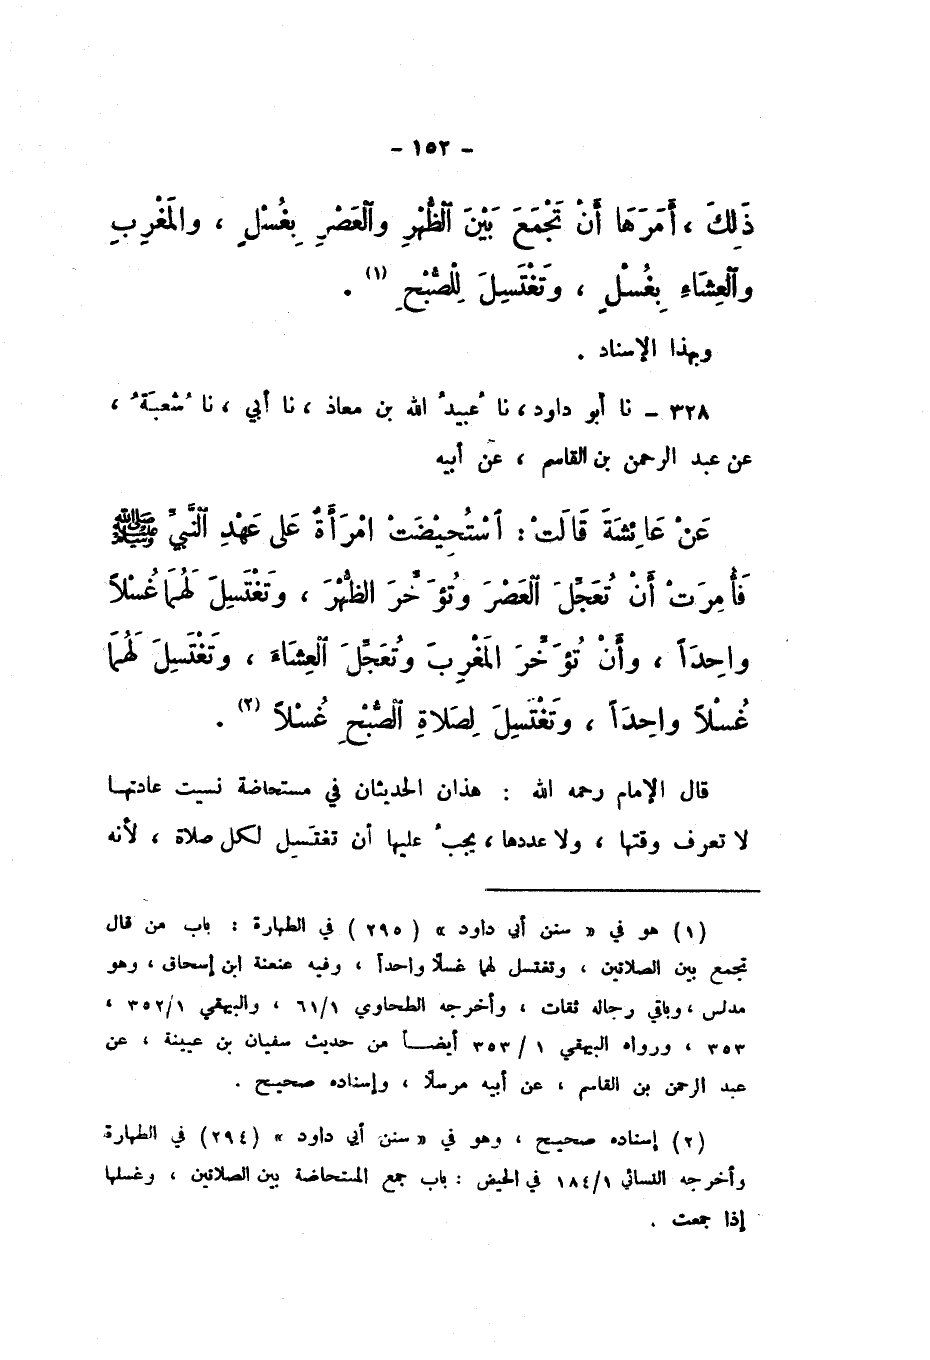 - ١٥٢ -
ذَلِكَ ، أَمَرَهَا أَنْ تَجْمَعَ بَيْنَ ٱلظُّهْرِ وٱلعَصْرِ بِغُسْلٍ ، والمَغْرِبِ
وٱلْعِشَاءِ بِغُسْلٍ ، وتَغْتَسِلَ لِلْصُّبْحِ (١) .
وبهذا الإسناد .
٣٢٨ – نا أبو داود ، نا ُعبيدُ الله بن معاذ ، نا أبي ، نا ُشعبَةُ ،
عن عبد الرحمن بن القاسم ، عن أبيه
عَنْ عَائِشَةَ قَالَتْ : ٱسْتُحِيْضَتْ امْرَأَةٌ عَلى عَهْدِ ٱلنَّبيِّ ﷺ
فَأُمِرَتْ أَنْ تُعَجِّلَ ٱلعَصْرَ وتُؤَخِّرَ الظُّهْرَ ، وتَغْتَسِلَ لَهُمَا غُسْلاً
واحِدَاً ، وأَنْ تُؤَخِّرَ المَغْرِبَ وتُعَجِّلَ ٱلْعِشَاءَ ، وتَغْتَسِلَ لَهُمَا
غُسْلاً واحِدَاً ، وتَغْتَسِلَ لِصَلاةِ ٱلصُّبْحِ غُسْلاً (٢) .
قال الإمام رحمه الله : هذان الحديثان في مستحاضة نسيت عادتهـا
لا تعرف وقتها ، ولا عددها ، يجبُ عليها أن تغتَسِل لكل صلاة ، لأنه
(١) هو في « سنن أبي داود » ( ٢٩٥ ) في الطهارة : باب من قال
تجمع بين الصلاتين ، وتغتسل لها غسلًا واحداً ، وفيه عنعنة ابن إسحاق ، وهو
مدلس ، وباقي رجاله ثقات ، وأخرجه الطحاوي ٦١/١ ، والبيهقي ٣٥٢/١ ،
٣٥٣ ، ورواه البيهقي ١ / ٣٥٣ أيضــاً من حديث سفيان بن عيينة ، عن
عبد الرحمن بن القاسم ، عن أبيه مرسلًا ، وإسناده صحيح .
(٢) إسناده صحيح ، وهو في « سنن أبي داود » (٢٩٤) في الطهارة
وأخرجه النسائي ١٨٤/١ في الحيض : باب جمع المستحاضة بين الصلاتين ، وغسلها
إذا جمعت .